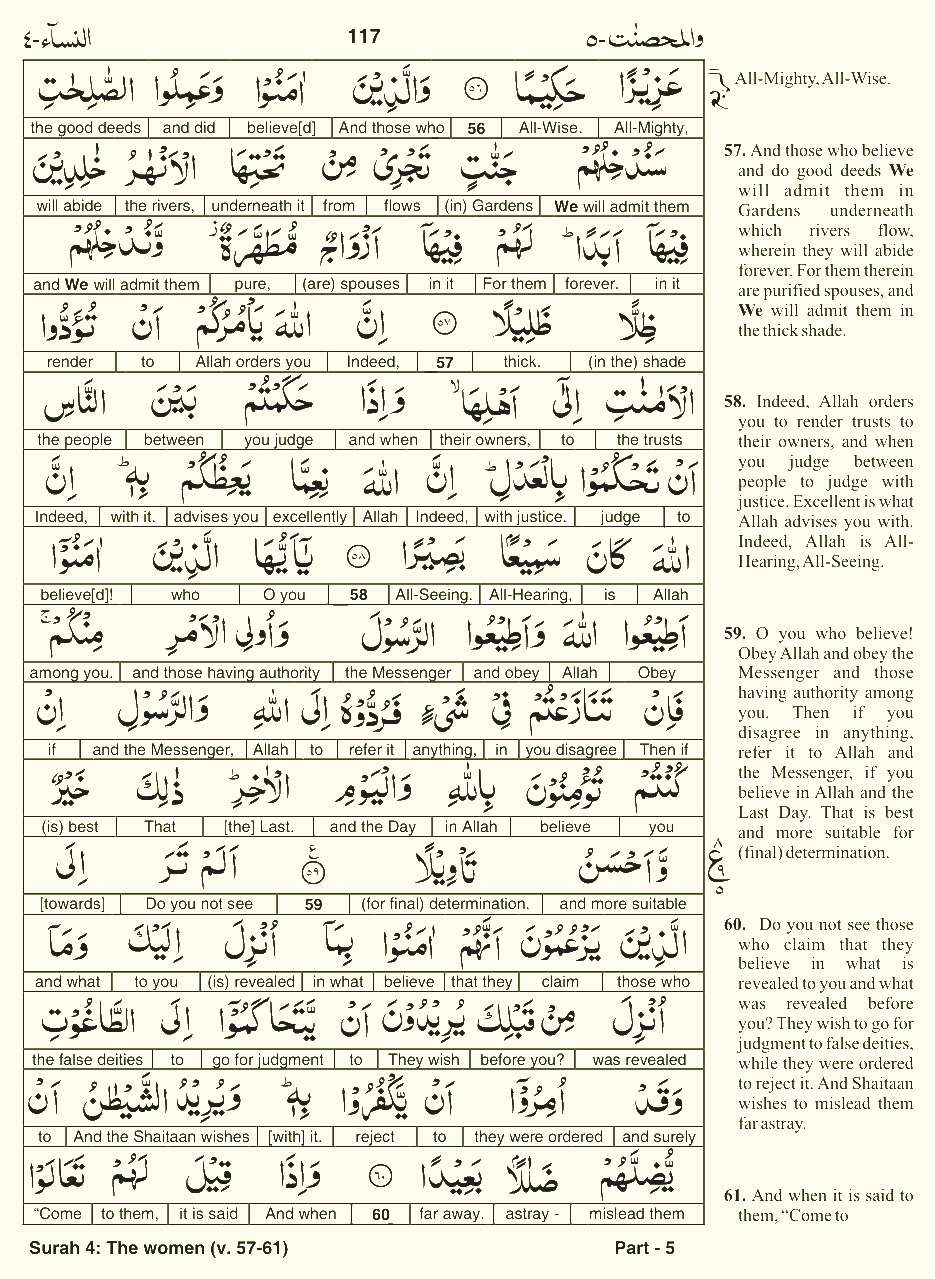 النسآء-٤
117
والمحصنٰت-٥
عَزِيْزًا حَكِيْمًا ٥٦ وَالَّذِيْنَ اٰمَنُوْا وَعَمِلُوا الصّٰلِحٰتِ
the good deeds | and did | believe[d] | And those who | 56 | All-Wise. | All-Mighty,
سَنُدْخِلُهُمْ جَنّٰتٍ تَجْرِيْ مِنْ تَحْتِهَا الْاَنْهٰرُ خٰلِدِيْنَ
will abide | the rivers, | underneath it | from | flows | (in) Gardens | We will admit them
فِيْهَاۤ اَبَدًا ؕ لَهُمْ فِيْهَاۤ اَزْوَاجٌ مُّطَهَّرَةٌ ز وَّنُدْخِلُهُمْ
and We will admit them | pure, | (are) spouses | in it | For them | forever. | in it
ظِلًّا ظَلِيْلًا ٥٧ اِنَّ اللّٰهَ يَاْمُرُكُمْ اَنْ تُؤَدُّوا
render | to | Allah orders you | Indeed, | 57 | thick. | (in the) shade
الْاَمٰنٰتِ اِلٰۤى اَهْلِهَا ۙ وَاِذَا حَكَمْتُمْ بَيْنَ النَّاسِ
the people | between | you judge | and when | their owners, | to | the trusts
اَنْ تَحْكُمُوْا بِالْعَدْلِ ؕ اِنَّ اللّٰهَ نِعِمَّا يَعِظُكُمْ بِهٖ ؕ اِنَّ
Indeed, | with it. | advises you | excellently | Allah | Indeed, | with justice. | judge | to
اللّٰهَ كَانَ سَمِيْعًۢا بَصِيْرًا ٥٨ يٰۤاَيُّهَا الَّذِيْنَ اٰمَنُوْۤا
believe[d]! | who | O you | 58 | All-Seeing. | All-Hearing, | is | Allah
اَطِيْعُوا اللّٰهَ وَاَطِيْعُوا الرَّسُوْلَ وَاُولِي الْاَمْرِ مِنْكُمْ ۚ
among you. | and those having authority | the Messenger | and obey | Allah | Obey
فَاِنْ تَنَازَعْتُمْ فِيْ شَيْءٍ فَرُدُّوْهُ اِلَى اللّٰهِ وَالرَّسُوْلِ اِنْ
if | and the Messenger, | Allah | to | refer it | anything, | in | you disagree | Then if
كُنْتُمْ تُؤْمِنُوْنَ بِاللّٰهِ وَالْيَوْمِ الْاٰخِرِ ؕ ذٰلِكَ خَيْرٌ
(is) best | That | [the] Last. | and the Day | in Allah | believe | you
وَّاَحْسَنُ تَاْوِيْلًا ٥٩ ع اَلَمْ تَرَ اِلَى
[towards] | Do you not see | 59 | (for final) determination. | and more suitable
الَّذِيْنَ يَزْعُمُوْنَ اَنَّهُمْ اٰمَنُوْا بِمَاۤ اُنْزِلَ اِلَيْكَ وَمَاۤ
and what | to you | (is) revealed | in what | believe | that they | claim | those who
اُنْزِلَ مِنْ قَبْلِكَ يُرِيْدُوْنَ اَنْ يَّتَحَاكَمُوْۤا اِلَى الطَّاغُوْتِ
the false deities | to | go for judgment | to | They wish | before you? | was revealed
وَقَدْ اُمِرُوْۤا اَنْ يَّكْفُرُوْا بِهٖ ؕ وَيُرِيْدُ الشَّيْطٰنُ اَنْ
to | And the Shaitaan wishes | [with] it. | reject | to | they were ordered | and surely
يُّضِلَّهُمْ ضَلٰلًۢا بَعِيْدًا ٦٠ وَاِذَا قِيْلَ لَهُمْ تَعَالَوْا
“Come | to them, | it is said | And when | 60 | far away. | astray - | mislead them
All-Mighty, All-Wise.
57. And those who believe
and do good deeds We
will admit them in
Gardens underneath
which rivers flow,
wherein they will abide
forever. For them therein
are purified spouses, and
We will admit them in
the thick shade.
58. Indeed, Allah orders
you to render trusts to
their owners, and when
you judge between
people to judge with
justice. Excellent is what
Allah advises you with.
Indeed, Allah is All-
Hearing, All-Seeing.
59. O you who believe!
Obey Allah and obey the
Messenger and those
having authority among
you. Then if you
disagree in anything,
refer it to Allah and
the Messenger, if you
believe in Allah and the
Last Day. That is best
and more suitable for
(final) determination.
ع
٩
٥
60. Do you not see those
who claim that they
believe in what is
revealed to you and what
was revealed before
you? They wish to go for
judgment to false deities,
while they were ordered
to reject it. And Shaitaan
wishes to mislead them
far astray.
61. And when it is said to
them, “Come to
Surah 4: The women (v. 57-61)
Part - 5